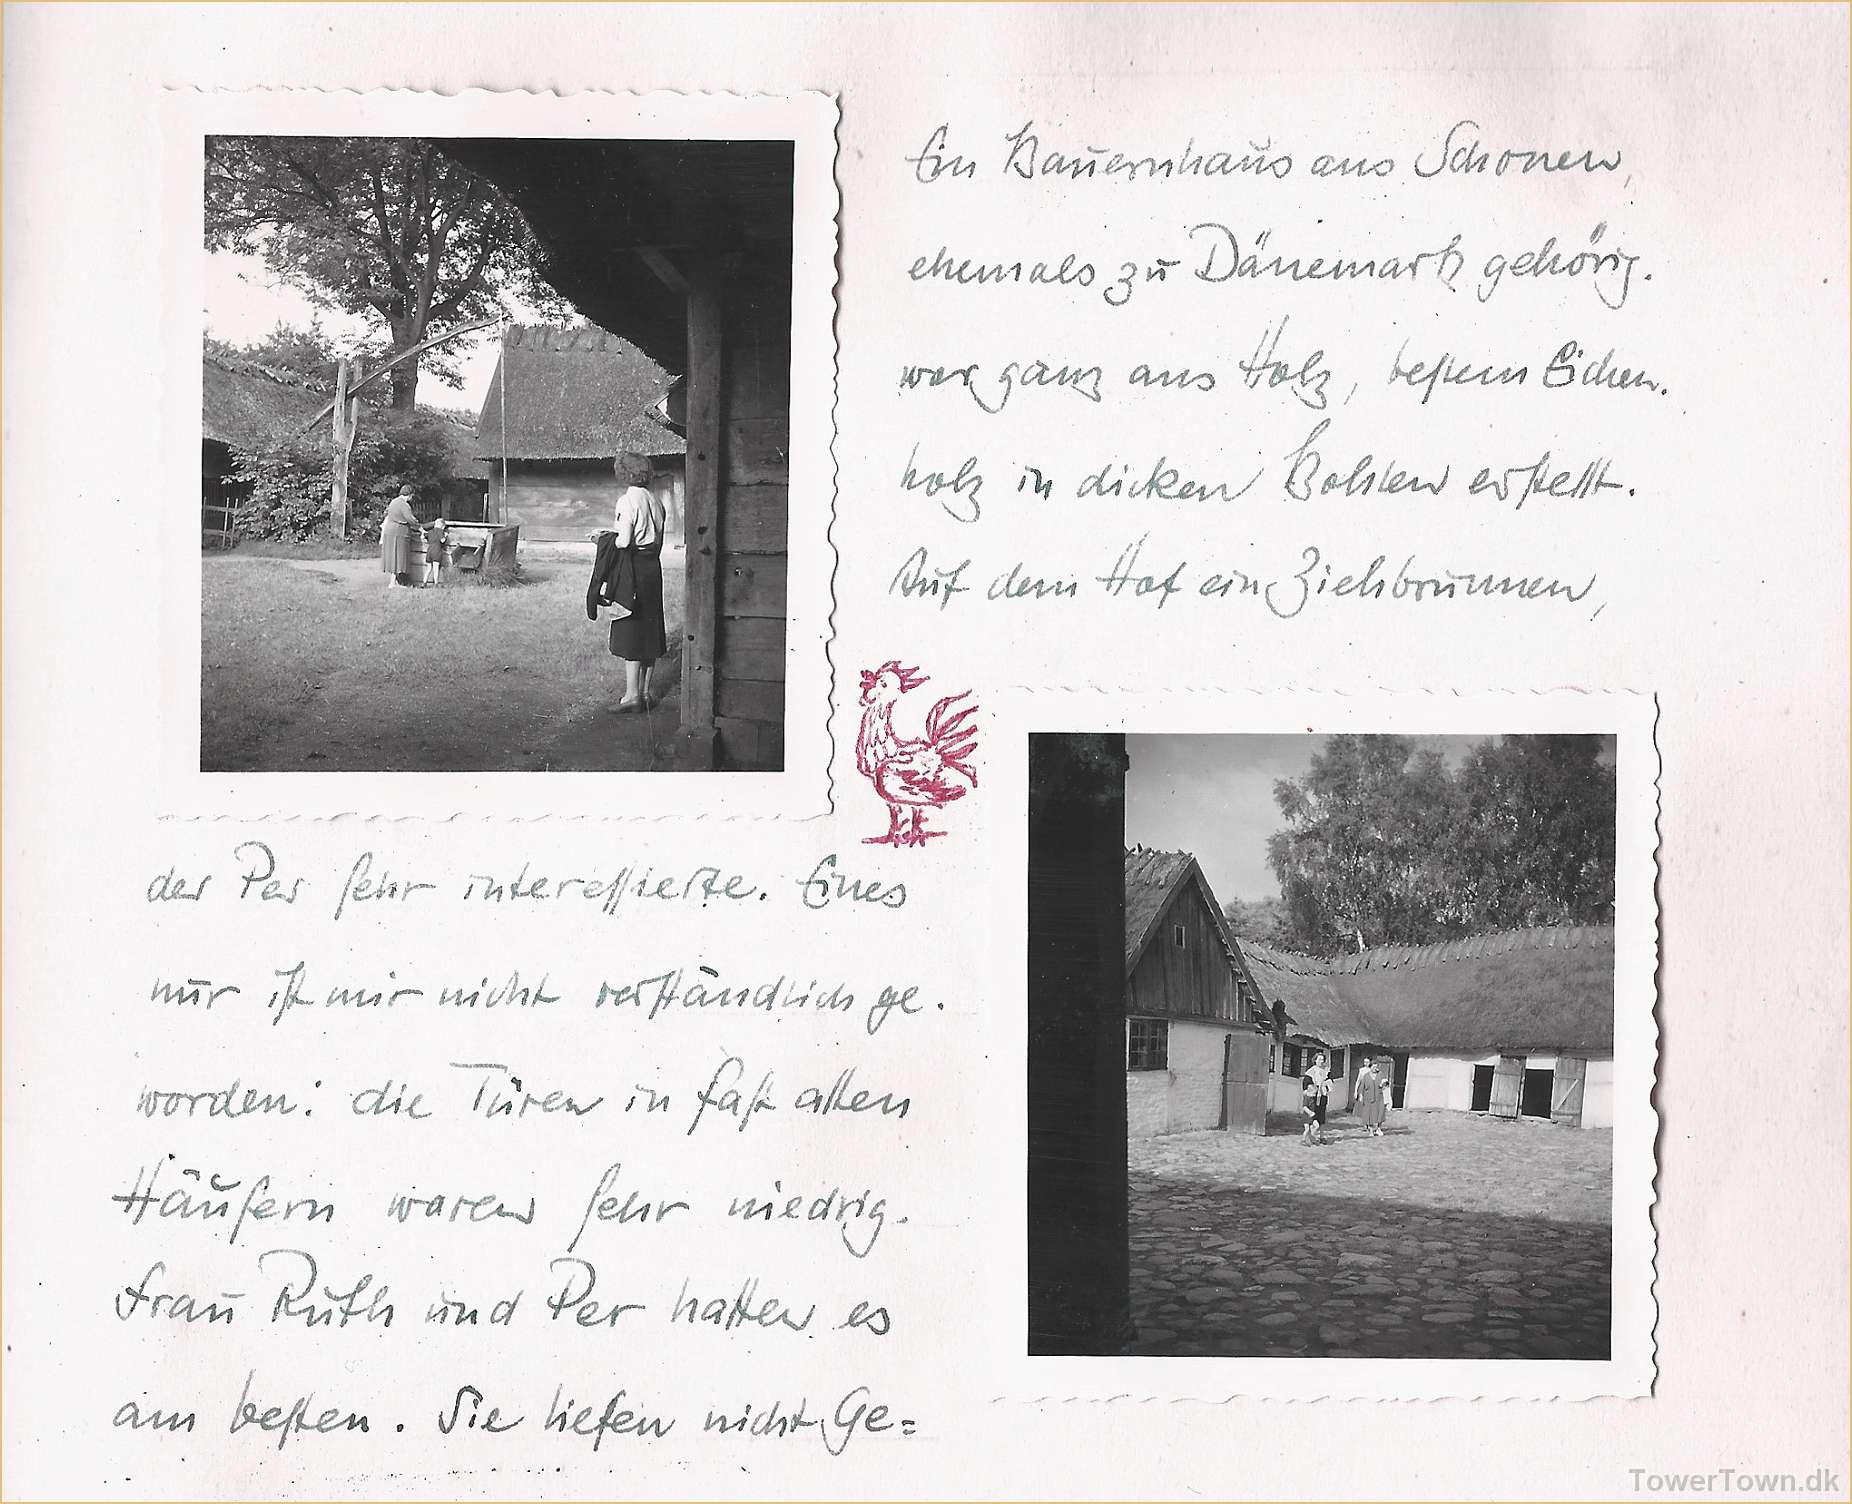 Ein Bauernhaus aus Schonen,
ehemals zu Dänemark gehörig.
war ganz aus Holz, bestem Eichen.
holz in dicken Bohlen erstellt.
Auf dem Hof ein Ziehbrunnen,
der Per sehr interessierte. Eines
nur ist mir nicht verständlich ge.
worden: die Türen in fast allen
Häusern waren sehr niedrig.
Frau Ruth und Per hatten es
am besten. Sie liefen nicht Ge=
TowerTown.dk